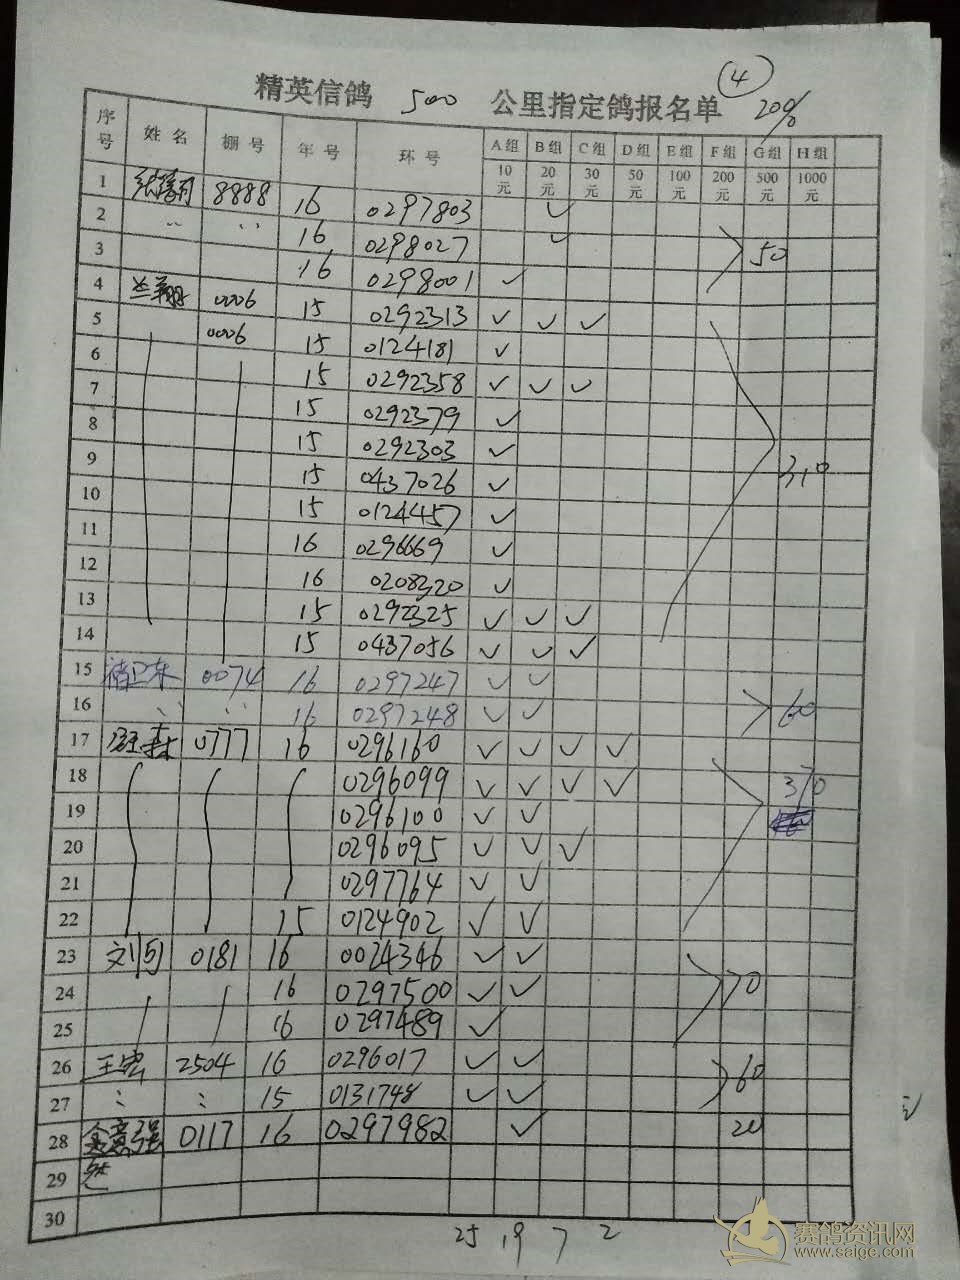 ④
精英信鸽 500 公里指定鸽报名单 200%
序号 姓名 棚号 年号 环号 A组 B组 C组 D组 E组 F组 G组 H组
10元 20元 30元 50元 100元 200元 500元 1000元
1 8888 16 0297803 ✓
2 〃 〃 16 0298027 ✓
3 16 0298001 ✓ 50
4 兰翔 0006 15 0292313 ✓ ✓ ✓
5 0006 15 0124181 ✓
6 15 0292358 ✓ ✓ ✓
7 15 0292379 ✓
8 15 0292303 ✓
9 15 0437026 ✓ 310
10 15 0124457 ✓
11 16 0296669 ✓
12 16 0208320 ✓
13 15 0292325 ✓ ✓ ✓
14 15 0437056 ✓ ✓ ✓
15 褚卫东 0074 16 0297247 ✓ ✓
16 〃 〃 16 0297248 ✓ ✓ 60
17 森 0777 16 0296160 ✓ ✓ ✓ ✓
18 0296099 ✓ ✓ ✓ ✓ 370
19 0296100 ✓ ✓
20 0296095 ✓ ✓ ✓
21 0297764 ✓ ✓
22 15 0124902 ✓ ✓
23 刘 0181 16 0024346 ✓ ✓
24 16 0297500 ✓ ✓ 70
25 16 0297489 ✓
26 王宏 2504 16 0296017 ✓ ✓ 60
27 〃 〃 15 0131748 ✓ ✓
28 金意强 0117 16 0297982 ✓ 20
29
30
25 19 7 2
赛鸽资讯网
www.saige.com